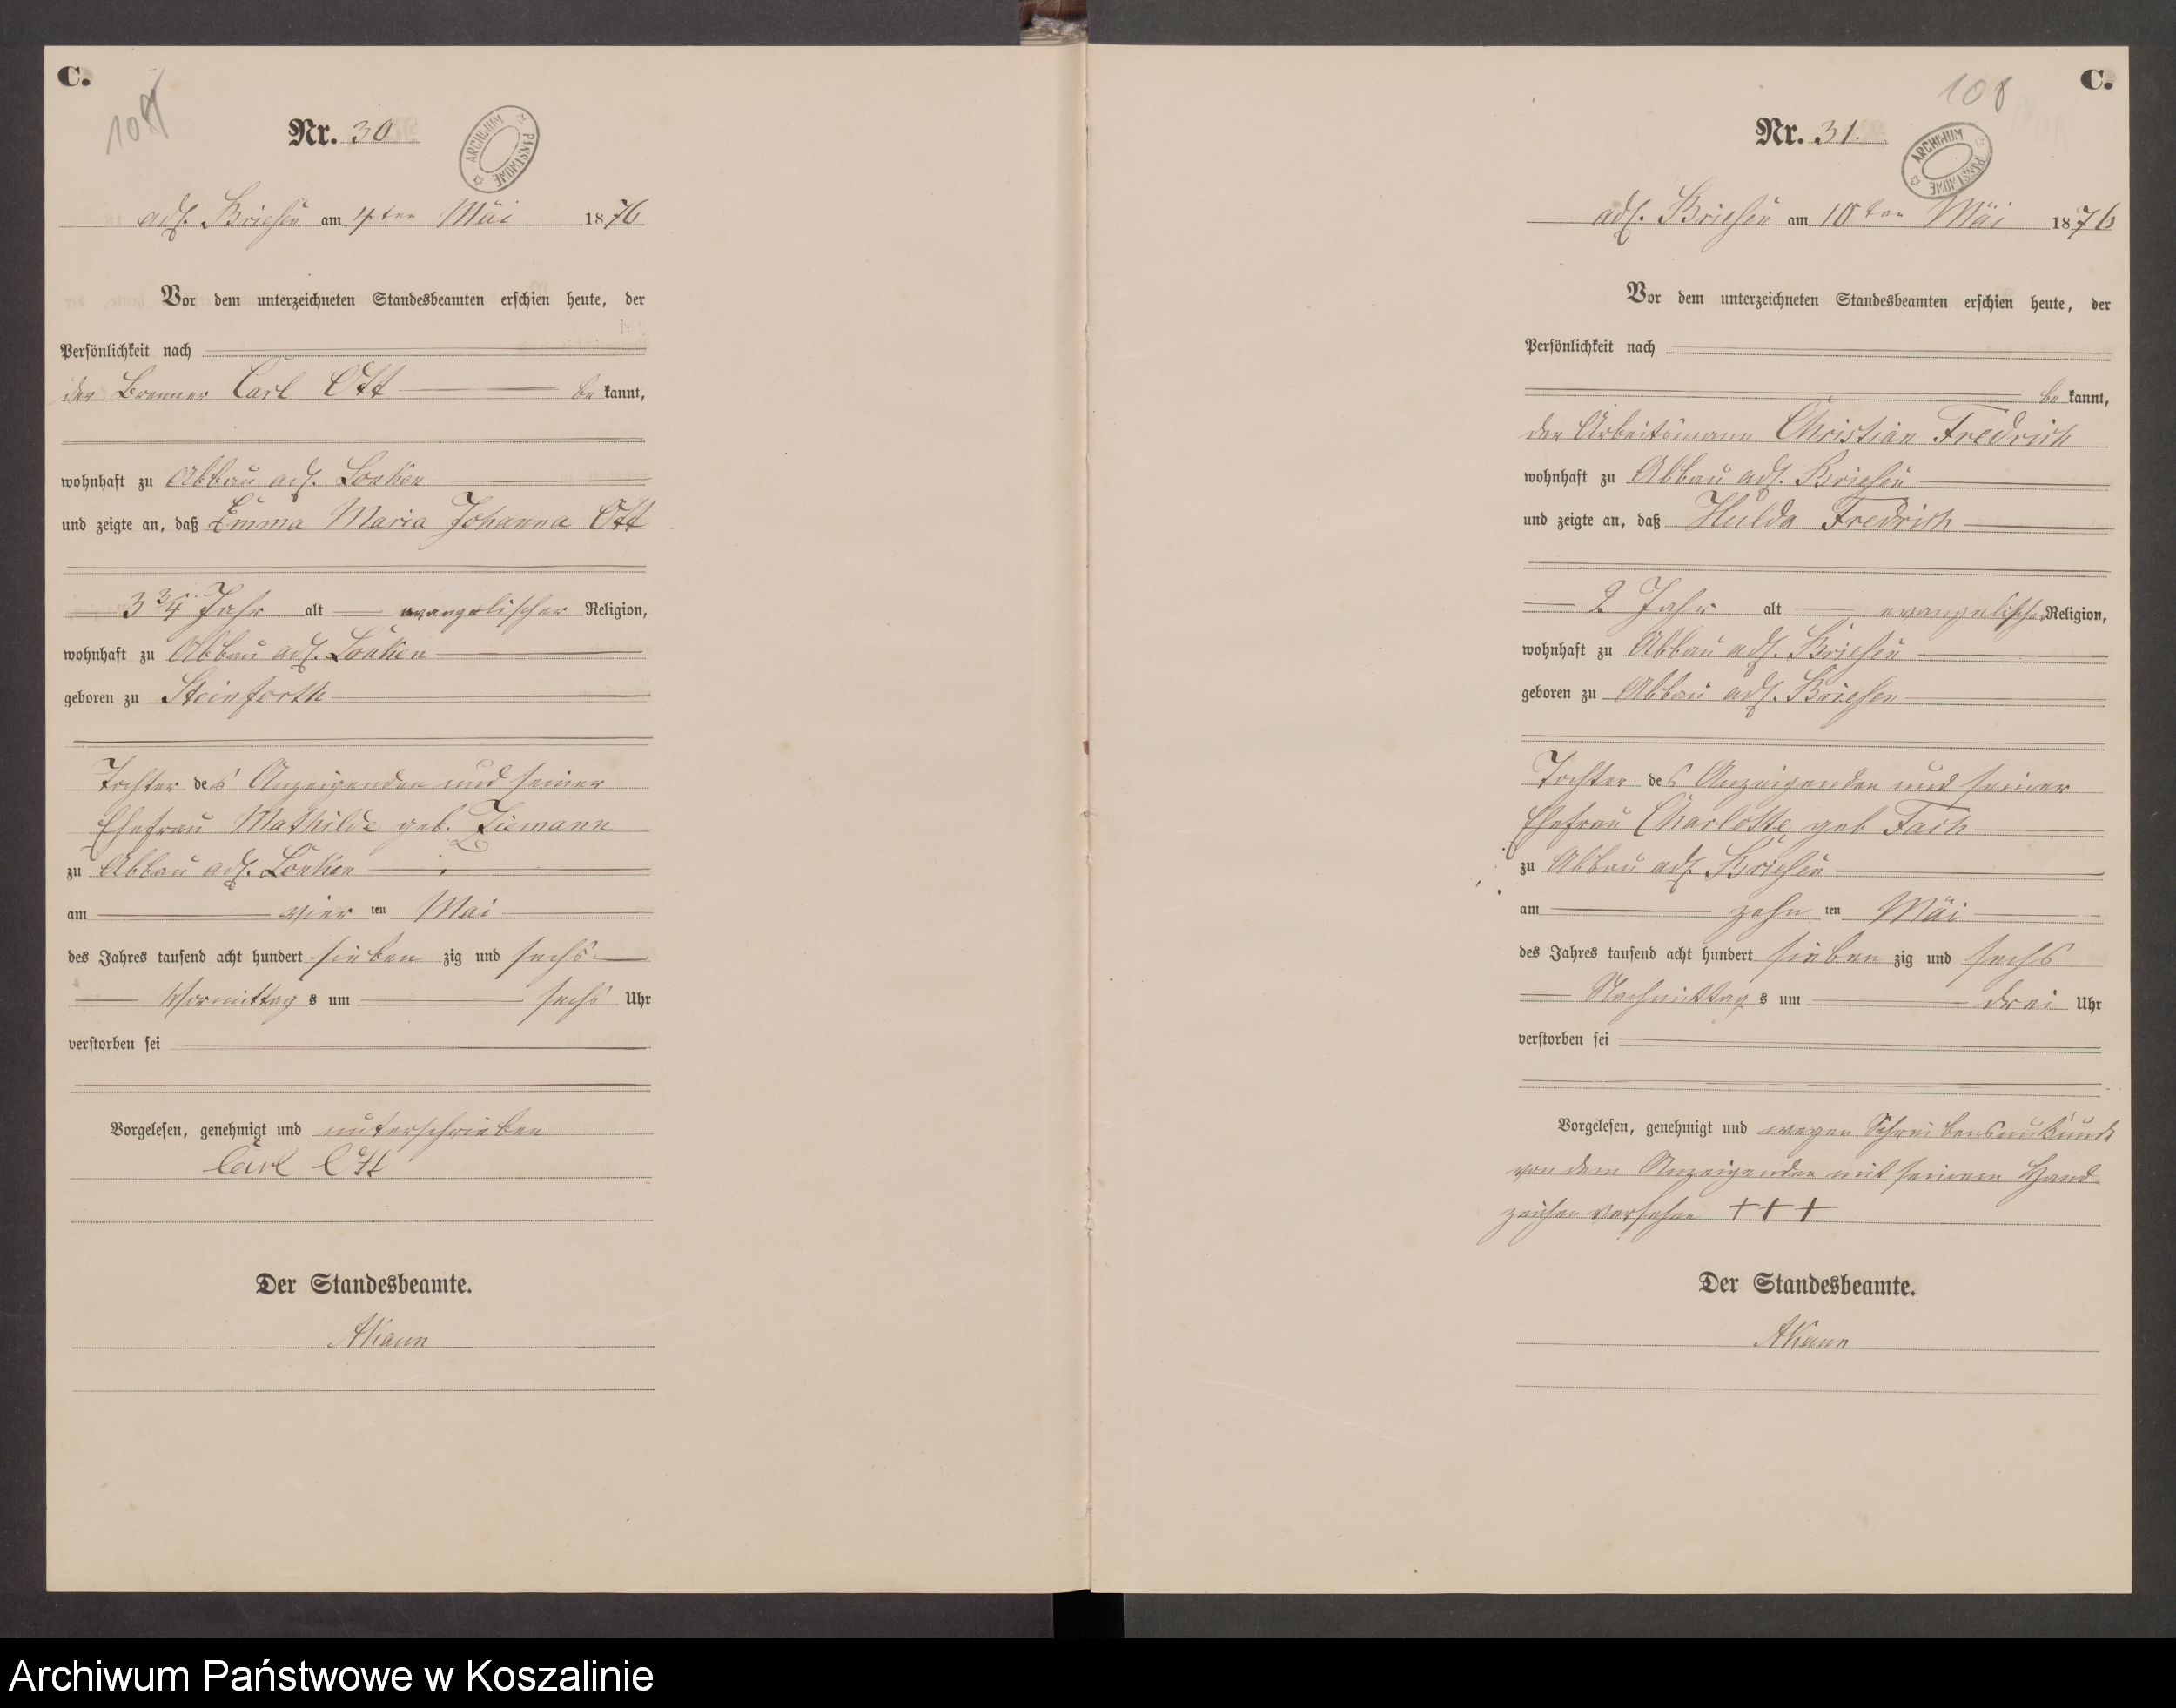 C.
Nr. 30
ARCHIWUM PAŃSTWOWE
adl. Briesen am 4ten Mai 1876
Vor dem unterzeichneten Standesbeamten erschien heute, der
Persönlichkeit nach
der Brenner Carl Ott bekannt,
wohnhaft zu Abbau adl. Lonken
und zeigte an, daß Emma Maria Johanna Ott
3 3/4 Jahr alt evangelischer Religion,
wohnhaft zu Abbau adl. Lonken
geboren zu Steinforth
Tochter des Anzeigenden und seiner
Ehefrau Mathilde geb. Ziemann
zu Abbau adl. Lonken
am vier ten Mai
des Jahres tausend acht hundert sieben zig und sechs
Vormittag s um sechs Uhr
verstorben sei
Vorgelesen, genehmigt und unterschrieben
Carl Ott
Der Standesbeamte.
C.
108
Nr. 31.
ARCHIWUM PAŃSTWOWE
adl. Briesen am 10ten Mai 1876
Vor dem unterzeichneten Standesbeamten erschien heute, der
Persönlichkeit nach
bekannt,
der Arbeitsmann Christian Fredrich
wohnhaft zu Abbau adl. Briesen
und zeigte an, daß Hulda Fredrich
2 Jahr alt evangelischer Religion,
wohnhaft zu Abbau adl. Briesen
geboren zu Abbau adl. Briesen
Tochter des Anzeigenden und seiner
Ehefrau Charlotte geb
zu Abbau adl. Briesen
am zehn ten Mai
des Jahres tausend acht hundert sieben zig und sechs
Nachmittag s um drei Uhr
verstorben sei
Vorgelesen, genehmigt und wegen Schreibensunkunde
von dem Anzeigenden mit seinem Hand
zeichen versehen +++
Der Standesbeamte.
Archiwum Państwowe w Koszalinie